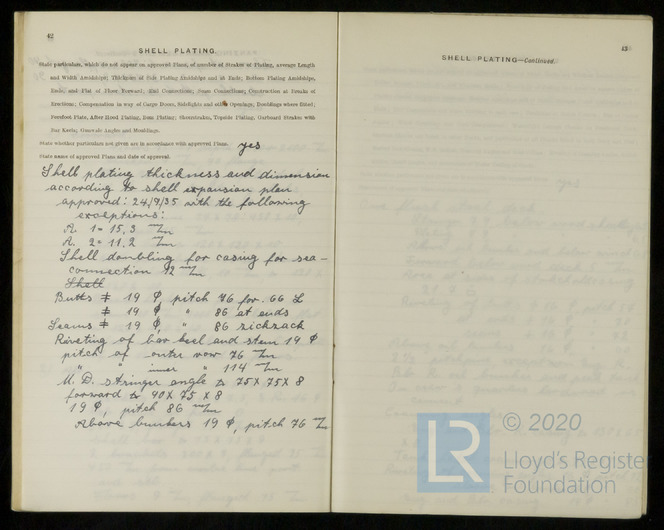 42
SHELL PLATING.
State particulars, which do not appear on approved Plans, of number of Strakes of Plating, average Length
and Width Amidships; Thickness of Side Plating Amidships and at Ends; Bottom Plating Amidships,
Ends, and Flat of Floor Forward; End Connections; Seam Connections; Construction at Breaks of
Erections; Compensation in way of Cargo Doors, Sidelights and other Openings; Doublings where fitted;
Forefoot Plate, After Hood Plating, Boss Plating; Sheerstrakes, Topside Plating; Garboard Strakes with
Bar Keels; Gunwale Angles and Mouldings.
State whether particulars not given are in accordance with approved Plans. yes
State name of approved Plans and date of approval.
Shell plating thickness and dimension
according to shell expansion plan
approved: 24/9/35 with the following
exceptions:
A. 1 = 15,3 m/m
A. 2 = 11,2 m/m
Shell doubling for casing for sea-
connection 12 m/m
Shell
Butts ǂ 19 ϕ pitch 76 for 66 L
ǂ 19 ϕ " 86 at ends
Seams ǂ 19 ϕ, " 86 sicksack
Riveting of bar keel and stem 19 ϕ
pitch of outer row 76 m/m
" " inner " 114 m/m
U.D. stringer angle 75 X 75 X 8
forward 90 X 75 X 8
19 ϕ, pitch 86 m/m
Above bunkers 19 ϕ, pitch 76 m/m
43
SHELL PLATING—Continued.
LR © 2020
Lloyd's Register
Foundation